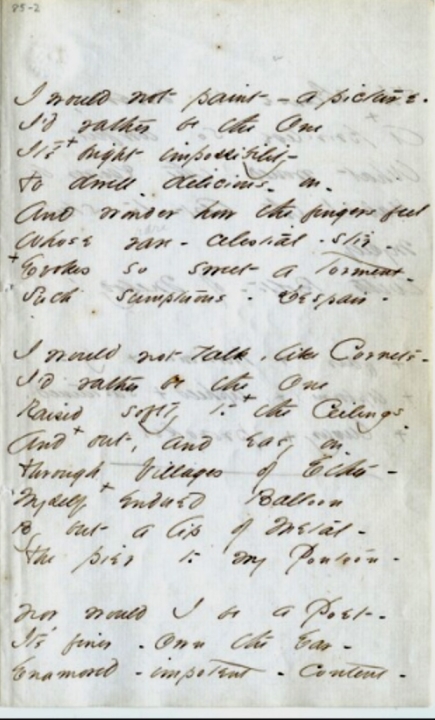 85-2
I would not paint - a picture -
I'd rather be the One
It's + bright impossibility
To dwell - delicious - on -
And wonder how the fingers feel
Whose rare - celestial - stir -
+ Evokes so sweet a Torment -
Such sumptuous - Despair -
I would not talk, like Cornets -
I'd rather be the One
Raised softly to + the Ceilings
And + out, and easy on -
Through Villages of Ether -
Myself + Endued Balloon
By but a lip of Metal -
The pier to my Pontoon -
Nor would I be a Poet -
It's finer - Own the Ear -
Enamored - impotent - content -